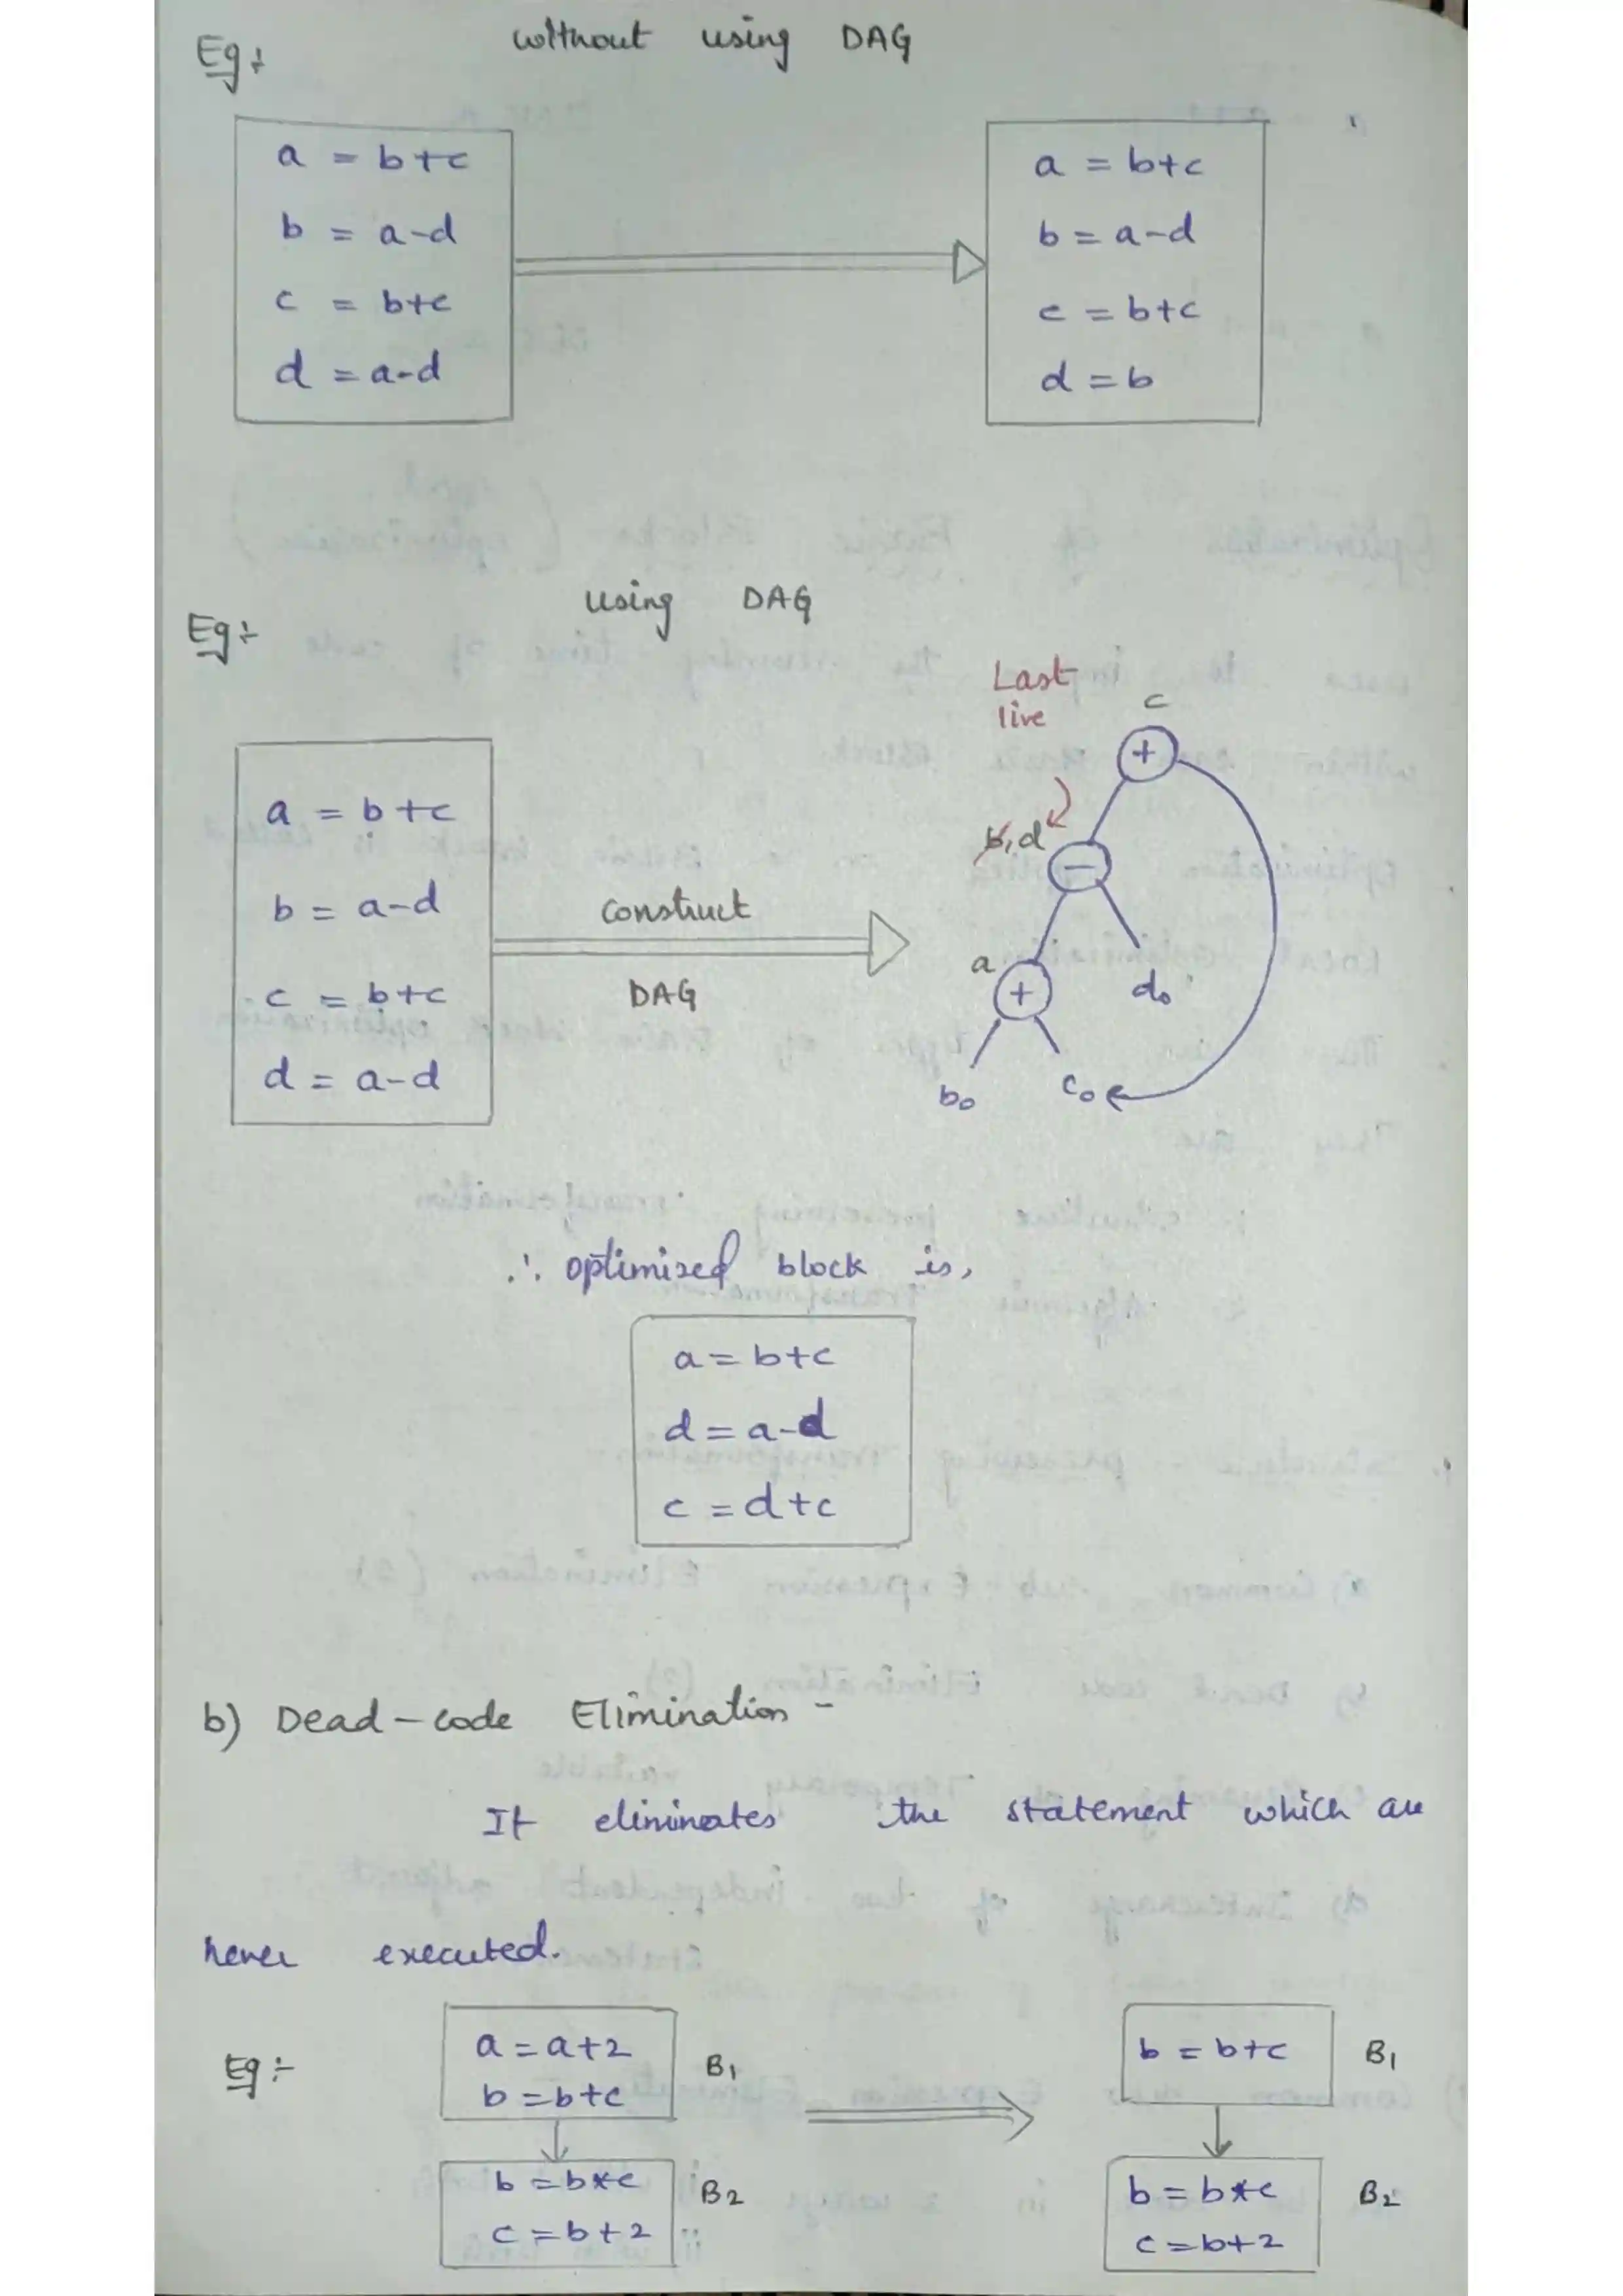 Eg:-
without using DAG
a = b+c
b = a-d
c = b+c
d = a-d
a = b+c
b = a-d
c = b+c
d = b
Eg:-
using DAG
a = b+c
b = a-d
c = b+c
d = a-d
construct
DAG
Last
live
c
+
b,d
-
a
+
d₀
b₀
c₀
∴ optimized block is,
a = b+c
d = a-d
c = d+c
b) Dead-code Elimination -
It eliminates the statement which are
never executed.
Eg:-
a = a+2
b = b+c
B₁
b = b*c
c = b+2
B₂
b = b+c
B₁
b = b*c
c = b+2
B₂